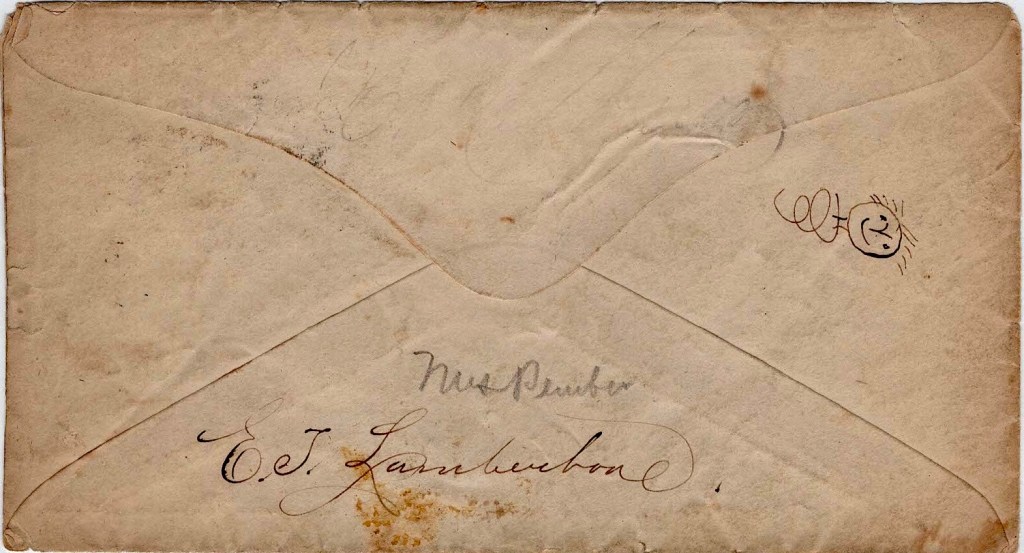 Mrs Pember
E. T. Lamberton.